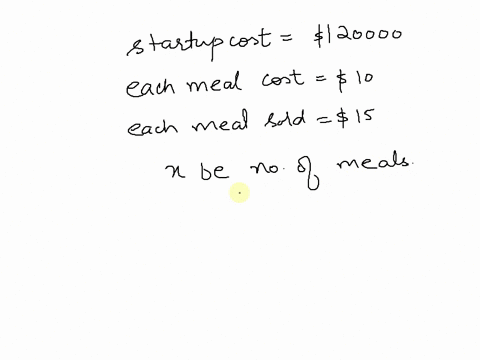 startup cost = $120000
each meal cost = $10
each meal sold = $15
x be no. of meals.